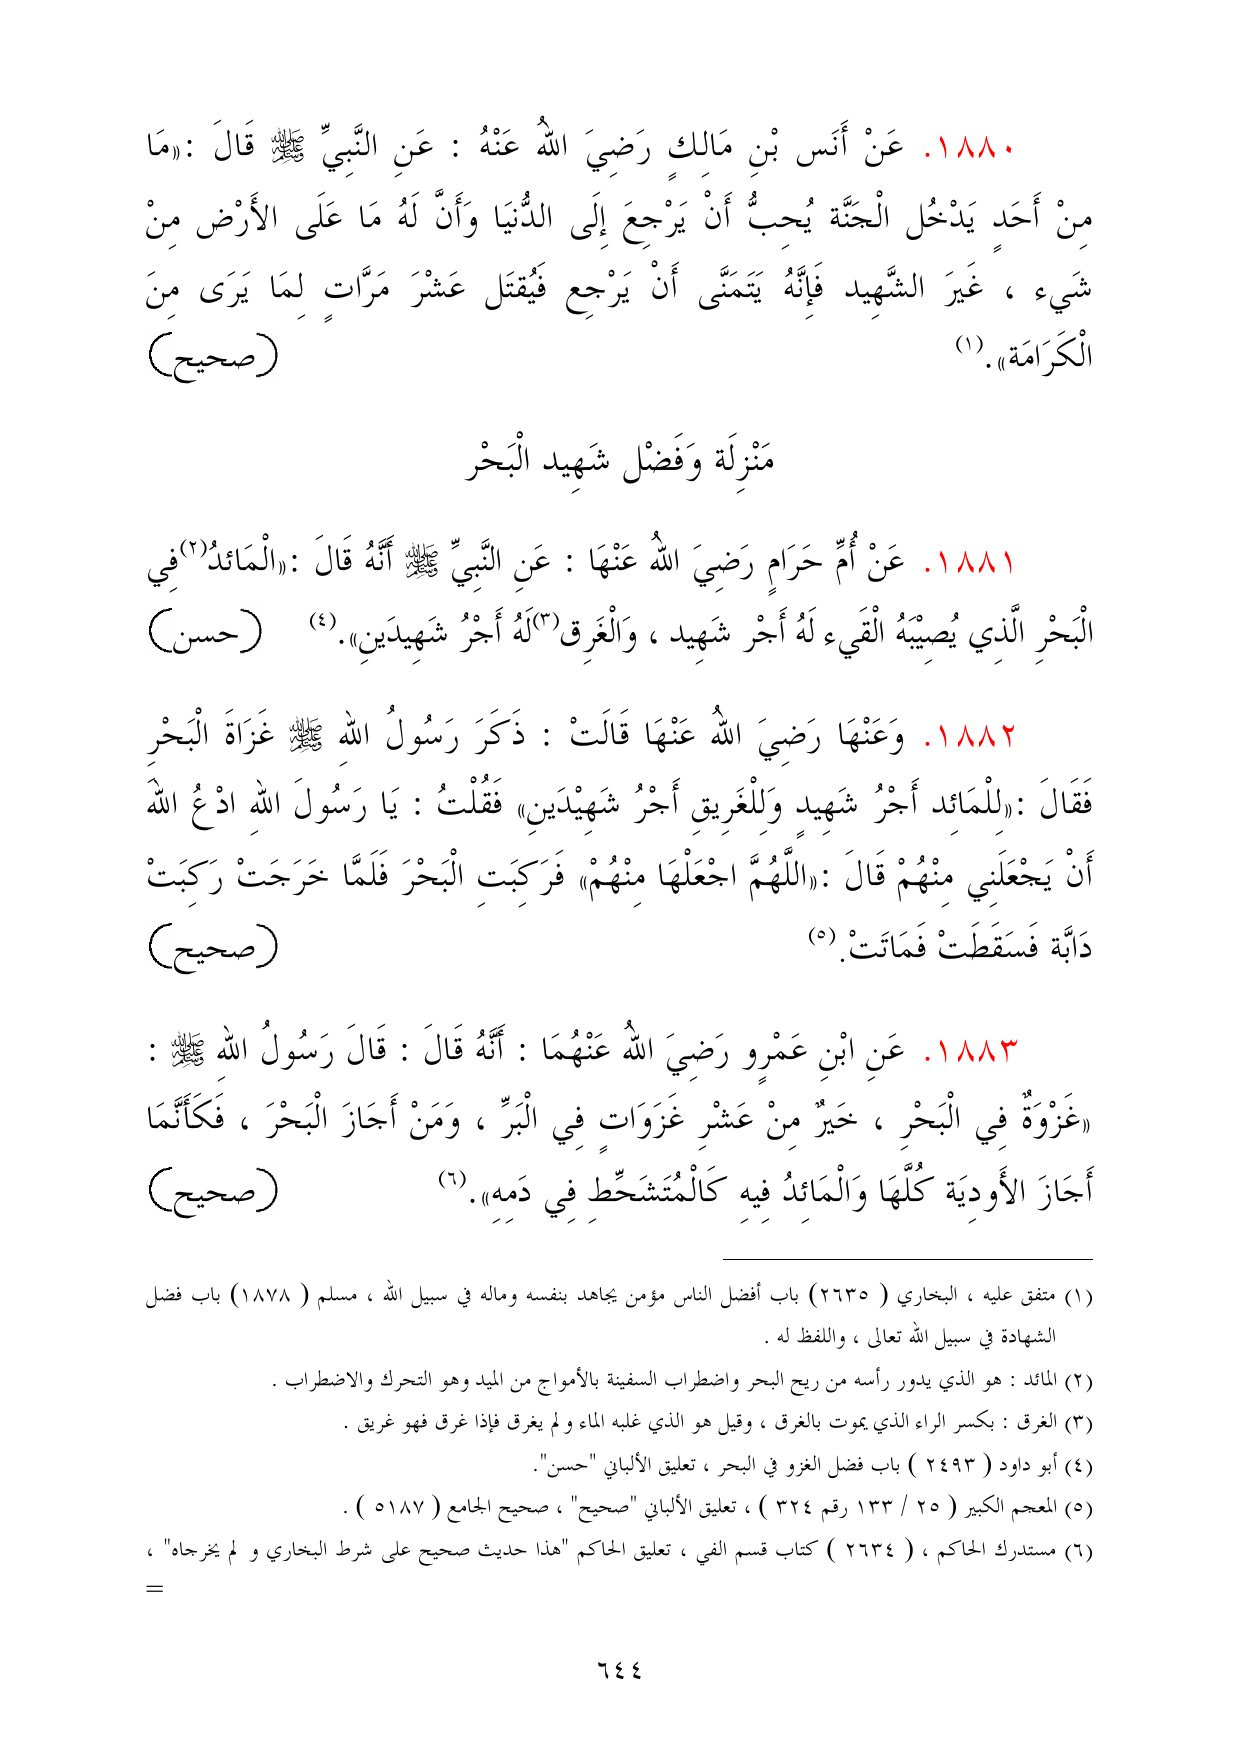 ١٨٨٠. عَنْ أَنَس بْنِ مَالِكٍ رَضِيَ اللهُ عَنْهُ : عَنِ النَّبِيِّ ﷺ قَالَ :«مَا
مِنْ أَحَدٍ يَدْخُل الْجَنَّة يُحِبُّ أَنْ يَرْجِعَ إِلَى الدُّنيَا وَأَنَّ لَهُ مَا عَلَى الأَرْض مِنْ
شَيء ، غَيرَ الشَّهِيد فَإِنَّهُ يَتَمَنَّى أَنْ يَرْجِع فَيُقتَل عَشْرَ مَرَّاتٍ لِمَا يَرَى مِنَ
الْكَرَامَة».(١) (صحيح)
مَنْزِلَة وَفَضْل شَهِيد الْبَحْر
١٨٨١. عَنْ أُمِّ حَرَامٍ رَضِيَ اللهُ عَنْهَا : عَنِ النَّبِيِّ ﷺ أَنَّهُ قَالَ :«الْمَائدُ(٢)فِي
الْبَحْرِ الَّذِي يُصِيْبَهُ الْقَيء لَهُ أَجْر شَهِيد ، وَالْغَرِق(٣)لَهُ أَجْرُ شَهِيدَينِ».(٤) (حسن)
١٨٨٢. وَعَنْهَا رَضِيَ اللهُ عَنْهَا قَالَتْ : ذَكَرَ رَسُولُ اللهِ ﷺ غَزَاةَ الْبَحْرِ
فَقَالَ :«لِلْمَائِد أَجْرُ شَهِيدٍ وَلِلْغَرِيقِ أَجْرُ شَهِيْدَينِ» فَقُلْتُ : يَا رَسُولَ اللهِ ادْعُ اللهَ
أَنْ يَجْعَلَنِي مِنْهُمْ قَالَ :«اللَّهُمَّ اجْعَلْهَا مِنْهُمْ» فَرَكِبَتِ الْبَحْرَ فَلَمَّا خَرَجَتْ رَكِبَتْ
دَابَّة فَسَقَطَتْ فَمَاتَتْ.(٥) (صحيح)
١٨٨٣. عَنِ ابْنِ عَمْرٍو رَضِيَ اللهُ عَنْهُمَا : أَنَّهُ قَالَ : قَالَ رَسُولُ اللهِ ﷺ :
«غَزْوَةٌ فِي الْبَحْرِ ، خَيرٌ مِنْ عَشْرِ غَزَوَاتٍ فِي الْبَرِّ ، وَمَنْ أَجَازَ الْبَحْرَ ، فَكَأَنَّمَا
أَجَازَ الأَودِيَة كُلَّهَا وَالْمَائِدُ فِيهِ كَالْمُتَشَحِّطِ فِي دَمِهِ».(٦) (صحيح)
(١) متفق عليه ، البخاري ( ٢٦٣٥) باب أفضل الناس مؤمن يجاهد بنفسه وماله في سبيل الله ، مسلم ( ١٨٧٨) باب فضل
الشهادة في سبيل الله تعالى ، واللفظ له .
(٢) المائد : هو الذي يدور رأسه من ريح البحر واضطراب السفينة بالأمواج من الميد وهو التحرك والاضطراب .
(٣) الغرق : بكسر الراء الذي يموت بالغرق ، وقيل هو الذي غلبه الماء و لم يغرق فإذا غرق فهو غريق .
(٤) أبو داود ( ٢٤٩٣ ) باب فضل الغزو في البحر ، تعليق الألباني "حسن".
(٥) المعجم الكبير ( ٢٥ / ١٣٣ رقم ٣٢٤ ) ، تعليق الألباني "صحيح" ، صحيح الجامع ( ٥١٨٧ ) .
(٦) مستدرك الحاكم ، ( ٢٦٣٤ ) كتاب قسم الفي ، تعليق الحاكم "هذا حديث صحيح على شرط البخاري و لم يخرجاه" ،
=
٦٤٤